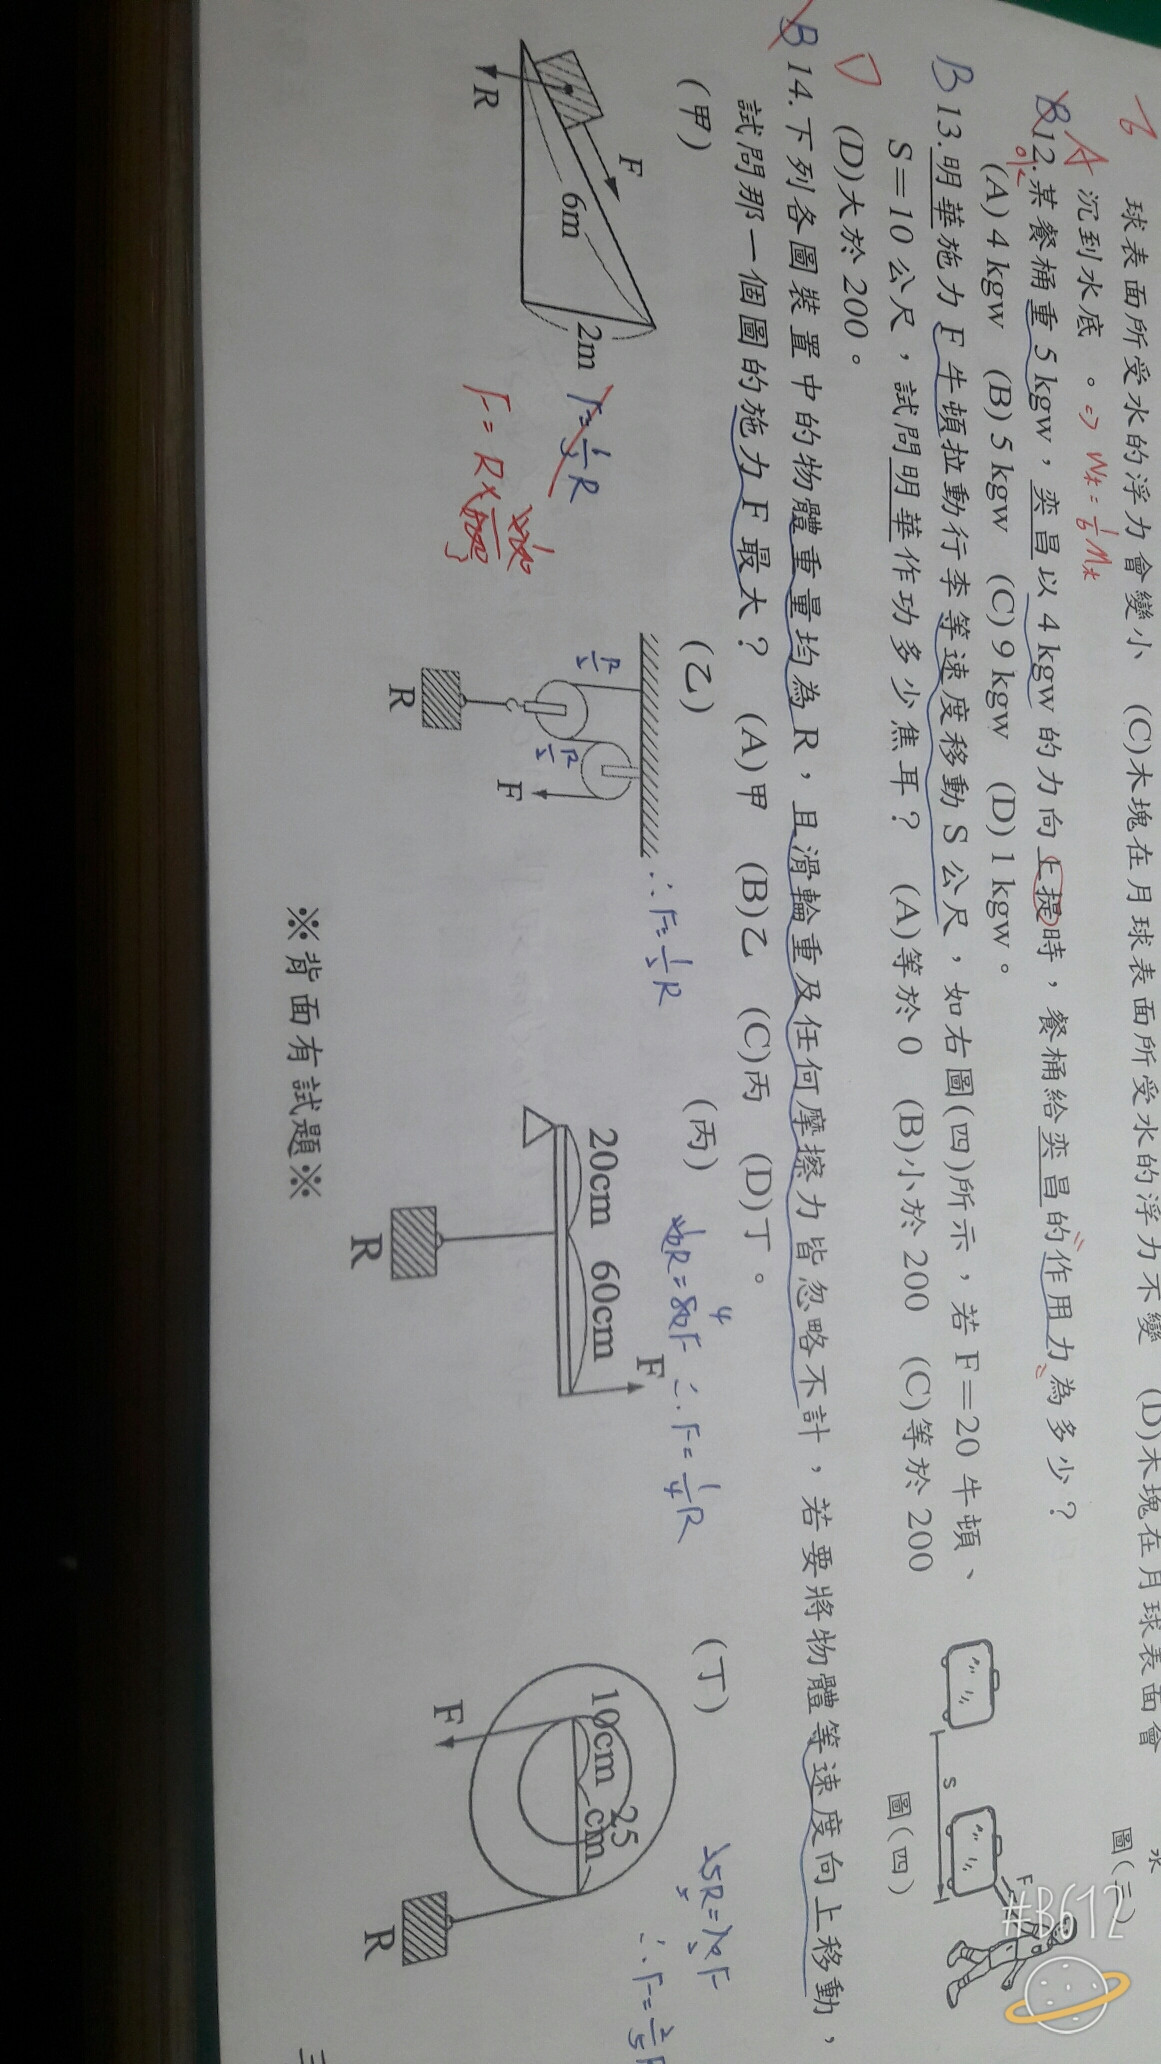 球表面所受水的浮力會變小 (C)木塊在月球表面所受水的浮力不變 (D)木塊在月球表面會
沉到水底 。
B 12.某餐桶重 5 kgw，奕昌以 4 kgw 的力向上提時，餐桶給奕昌的作用力為多少？
A
(A) 4 kgw (B) 5 kgw (C) 9 kgw (D) 1 kgw。
B 13.明華施力 F 牛頓拉動行李等速度移動 S 公尺，如右圖(四)所示，若 F＝20 牛頓、
S＝10 公尺，試問明華作功多少焦耳？ (A)等於 0 (B)小於 200 (C)等於 200
(D)大於 200。
B 14.下列各圖裝置中的物體重量均為 R，且滑輪重及任何摩擦力皆忽略不計，若要將物體等速度向上移動，
D
試問那一個圖的施力 F 最大？ (A)甲 (B)乙 (C)丙 (D)丁。
(甲)
F
6m
2m
R
F = R×
(乙)
R/2
R/2
F
R
∴ F = 1/2 R
(丙)
20cm 60cm
F
R
∴ F = 1/4 R
(丁)
10cm
25
cm
F
R
25R = 10F
S
F
圖(四)
圖(三)
水
#B612
※背面有試題※